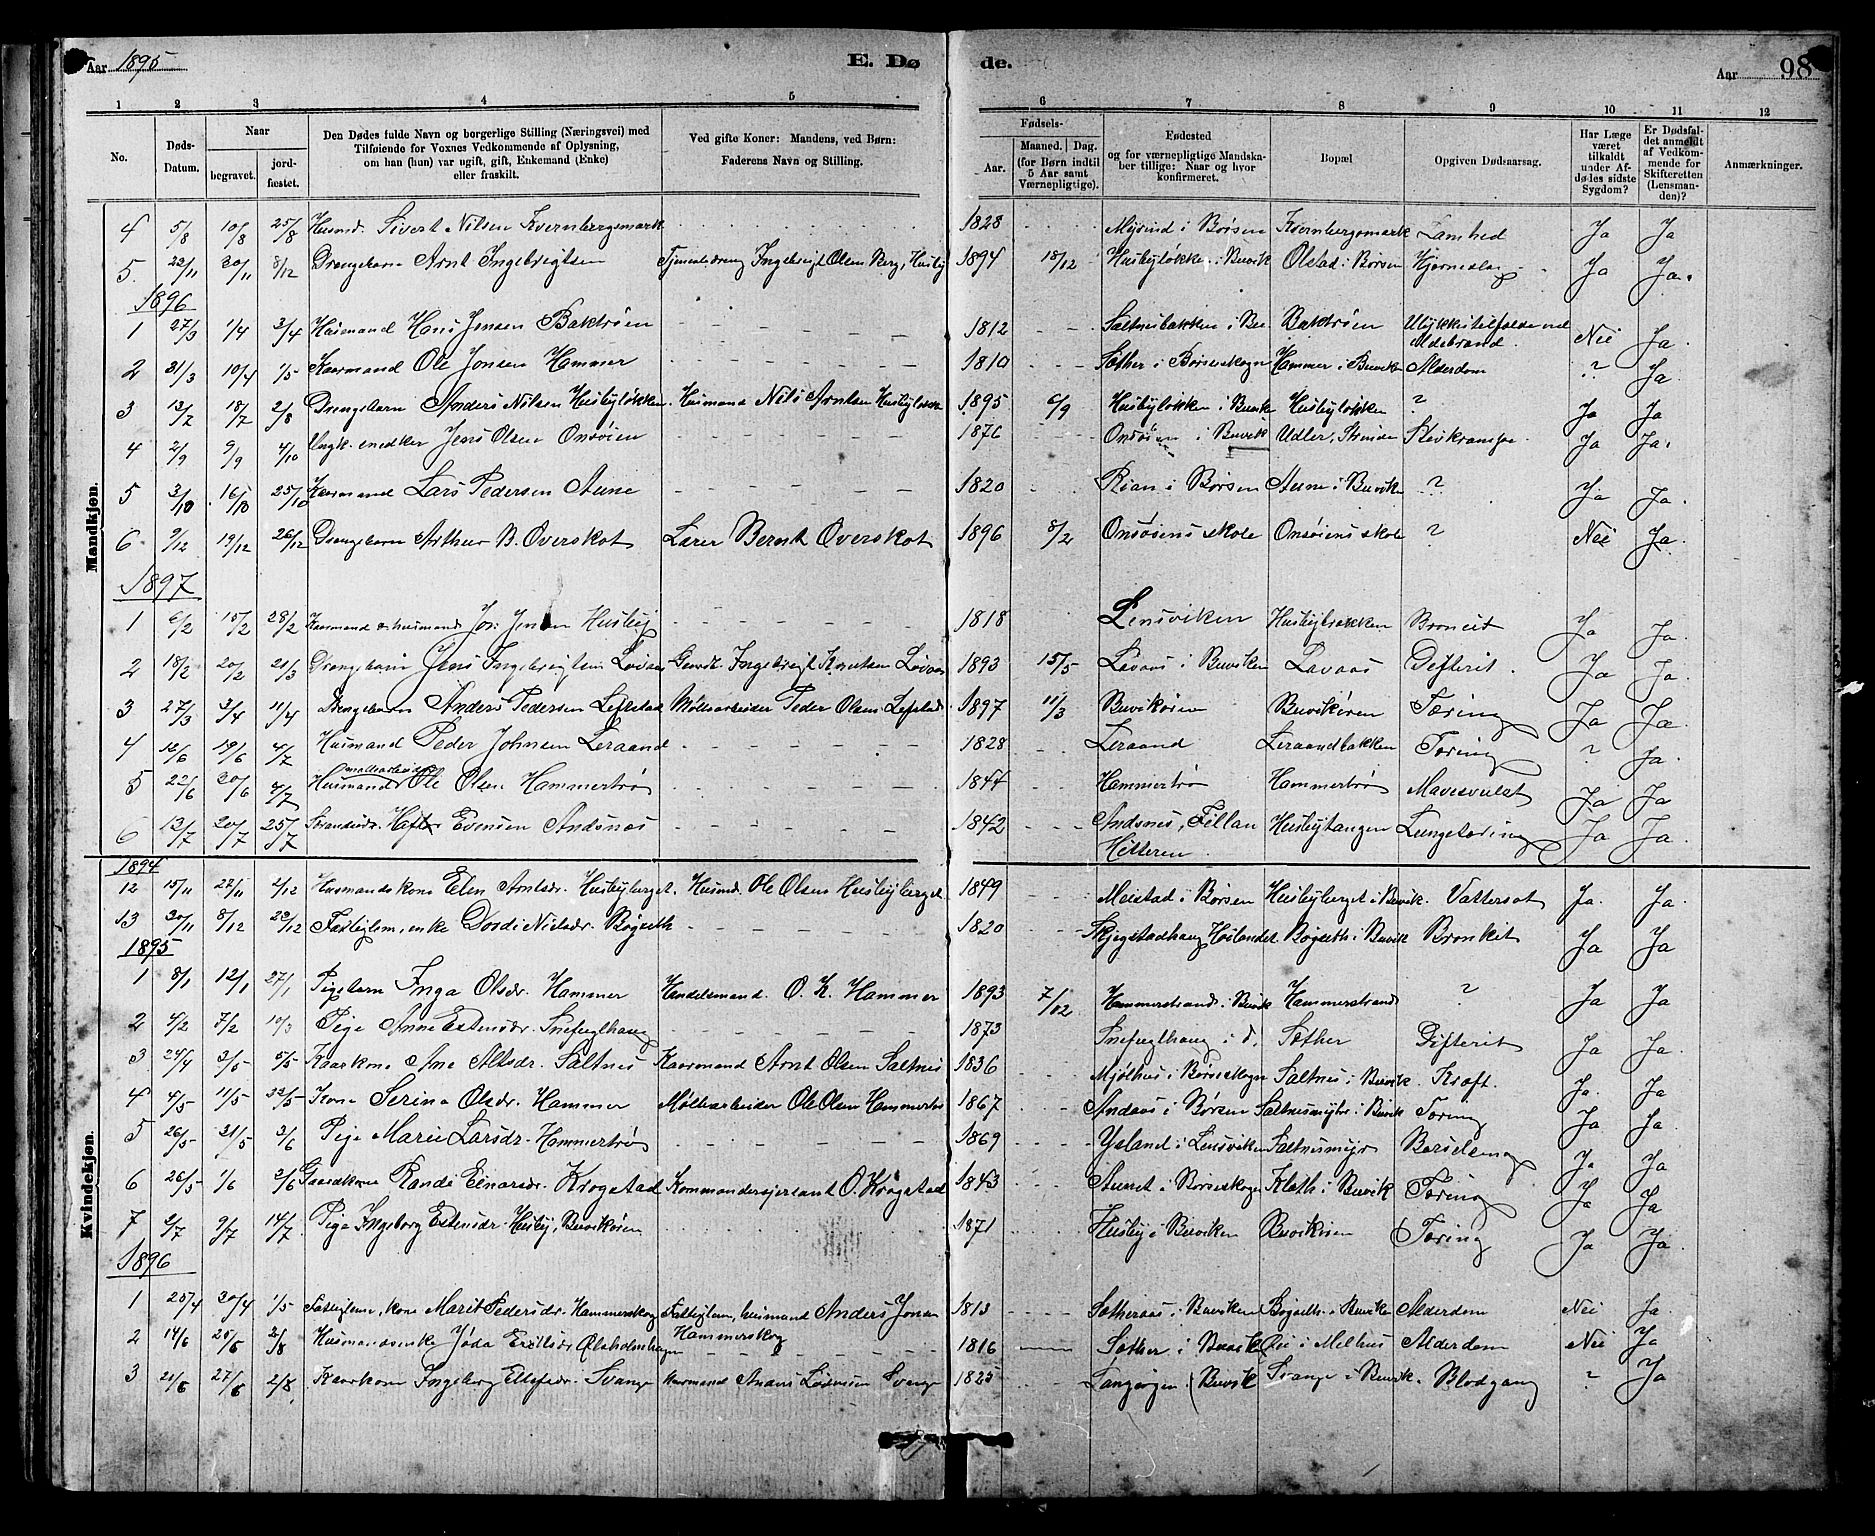 Aar 1895
E. Dø
de.
Aar
98
1 2 3 4 5 6 7 8 9 10 11 12
No.
Døds-Datum.
Naar
begravet.
jord-fæstet.
Den Dødes fulde Navn og borgerlige Stilling (Næringsvei) med
Tilføiende for Voxnes Vedkommende af Oplysning,
om han (hun) var ugift, gift, Enkemand (Enke)
eller fraskilt.
Ved gifte Koner: Mandens, ved Børn:
Faderens Navn og Stilling.
Fødsels-
Aar.
Maaned. Dag.
(for Børn indtil
5 Aar samt
Værnepligtige).
Fødested
og for værnepligtige Mandska-
ber tillige: Naar og hvor
konfirmeret.
Bopæl
Opgiven Dødsaarsag.
Har Læge
været
tilkaldt
under Af-
dødes sidste
Sygdom?
Er Dødsfal-
det anmeldt
af Vedkom-
mende for
Skifteretten
(Lensman-
den)?
Anmærkninger.
Mandkjøn.
4 5/8 10/8 25/8 Husmd. Sivert Nilsen Kvernbergsmark 1828 Myrind i Børsen Kvernbergsmark Lamhed Ja Ja
5. 22/11 30/11 8/12 Drengebarn Arnt Ingebrigtsen Tjenestedreng Ingebrigt Olsen Berg, Husby 1894 18/12 Husbyløkken i Buvik Ølstad i Børsen Hjerneslag Ja Ja.
1896
1 27/3 1/4 3/4 Husmand Hans Jensen Baktrøen 1812 Saltnesbakken i Bu Baktrøen Ulykkestilfælde ved Ildebrand. Nei Ja.
2 31/3 10/4 1/5 Kaarmand Ole Jonsen Hammer 1810 Sæther i Børseskogn Hammer i Buviken Alderdom ? Ja.
3 13/7 18/7 2/8 Drengebarn Anders Nilsen Husbyløkken. Husmand Nils Arntsen Husbyløkk 1895 6/9 Husbyløkken i Buvik Husbyløkken ? Ja Ja
4 2/9 9/9 4/10 Ungk. snedker Jens Olsen Onsøien 1876 Onsøien i Buvik Udler, Strinden Ja Ja.
5 3/10 16/10 25/10 Kaarmand Lars Pedersen Aune 1820 Rian i Børsen Aune i Buviken ? Ja Ja.
6 9/12 19/12 26/12 Drengebarn Arthur B. Overskot Lærer Bernt Overskot 1896 8/2 Onsøiens skole Onsøiens skole ? Nei Ja.
1897
1 6/2 15/2 28/2 Kaarmand & husmand Jos. Jensen Husby 1818 Lensviken Broncit Ja Ja.
2 18/2 20/2 21/3 Drengebarn Jens Ingebrigtsen Løvaas Gmd. Ingebrigt Knutsen Løvaas 1893 15/5 Løvaas i Buviken Løvaas Difterit. Ja Ja.
3 27/3 3/4 11/4 Drengebarn Anders Pedersen Lefstad Møllearbeider Peder Olsen Lefstad 1897 11/3 Buvikøien Buvikøren Tæring Ja Ja.
4 12/6 19/6 4/7 Husmand Peder Johnsen Leraand 1828 Leraand Leraandbakken Tæring ? Ja.
5 22/6 30/6 4/7 Husmand møllearbeider Ole Olsen Hammertrø 1844 Hammertrø Hammertrø Mavesvulst Ja Ja
6 13/7 20/7 25/7 Strandsidr. Evensen Andsnes 1842 Andsnes, Fillan Hitteren. Husbytangen Lungetæring Ja Ja.
Kvindekjøn.
1894
12 15/11 27/11 2/12 Husmandskone Elen Arntsdr. Husbyberget. Husmd. Ole Olsen Husbyberget 1849 Meistad i Børsen Husbyberget i Buvik. Vattersot Ja. Ja.
13 30/11 8/12 22/12 Fattiglem, enke Dordi Nielsdr. Bøgseth 1820 Skjegstadhaug Høilandet Bøgseth i Buvik Bronkit Ja Ja
1895
1 8/1 12/1 27/1 Pigebarn Inga Olsdr. Hammer Handelsmand. O. K. Hammer 1893 7/02 Hammerstrand i Buvik Hammerstrand ? Ja Ja
2 4/2 7/2 10/3 Pige Anne Estensdr. Snefuglhaug 1873 Snefuglhaug i d. Sæther Difterit Ja Ja.
3 24/4 2/5 5/5 Kaarkone Ane Saltnes Kaarmand Arnt Olsen Saltnes 1836 Mjølhus i Børseskogn Saltnes i Buvik. Kræft. Ja. Ja
4 4/5 11/5 22/5 Kone Serina Olsdr. Hammer Møllearbeider Ole Olsen Hammertrø 1867 Andaas i Børsen Saltnesmyr i Buvik Tæring Ja Ja.
5 26/5 31/5 3/6 Pige Marie Larsdr. Hammertrø 1869 Ysland i Lensviken Saltnesmyr Barselseng Ja Ja
6 26/5 1/6 2/6 Gaardkone Randi Einarsdr. Krogstad Kommandersjersant O. Krogstad 1843 Sturret i Børseskogn Klæth i Buvik Tæring Ja Ja.
7 2/7 9/7 14/7 Pige Ingeborg Estensdr. Husby, Buvikøien 1871 Husby i Buviken Buvikøien Tæring Ja Ja.
1896
1 25/4 30/4 1/5 Fattiglem, kone Marit Pedersdr. Hammerskog Fattiglem, husmand Anders Jonsen Hammerskog 1813 Sætheraas i Buviken Bøgseth i Buviken Alderdom Nei Ja.
2 14/6 Husmandsenke Jøda Ericksdr. Ølsholmhagen 1816 Sæther i Buvik Øie i Melhus Alderdom Nei Ja
3 21/6 27/6 2/8 Kaarkone Ingeborg Ellefsdr. Svange Kaarmand Svange 1825 Langørgen (Buvik Svange i Buvik. Blodgang ? Ja